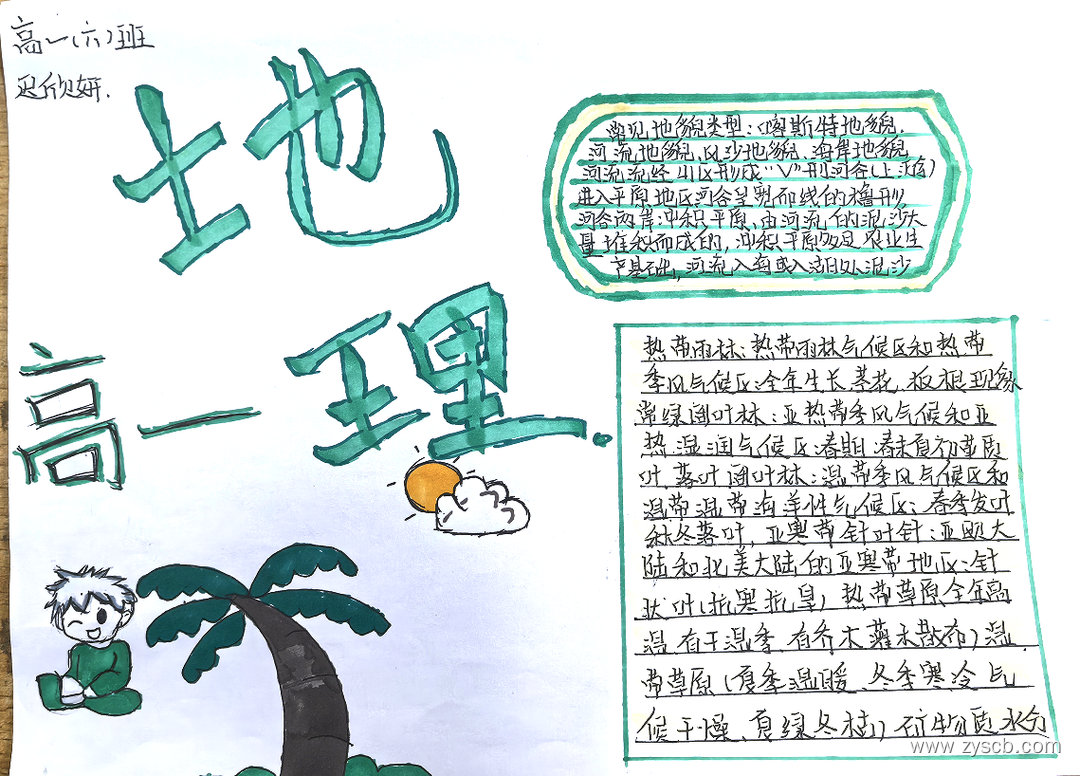 高一(六)班
迟欣妍.
地
土
理
高一
常见地貌类型:(喀斯特地貌.
河流地貌、风沙地貌、海岸地貌
河流流经山区形成"V"形河谷(上游)
进入平原地区河谷呈宽而线的槽形
河谷两岸冲积平原,由河流的泥沙大
量堆积而成的,冲积平原多是农业生
产基础,河流入海或入湖处泥沙
热带雨林:热带雨林气候区和热带
季风气候区:全年生长茎花,板根现象
常绿阔叶林:亚热带季风气候和亚
热湿润气候区:春期春末夏初革质
叶,落叶阔叶林:温带季风气候区和
温带温带海洋性气候区:春季发叶
秋冬落叶,亚寒带针叶针:亚欧大
陆和北美大陆的亚寒带地区:针
状叶(抗寒抗旱)热带草原全年高
温有干湿季,有乔木灌木散布)温
带草原(夏季温暖、冬季寒冷气
候干燥、夏绿冬枯)矿物质水分
www.zyscb.com